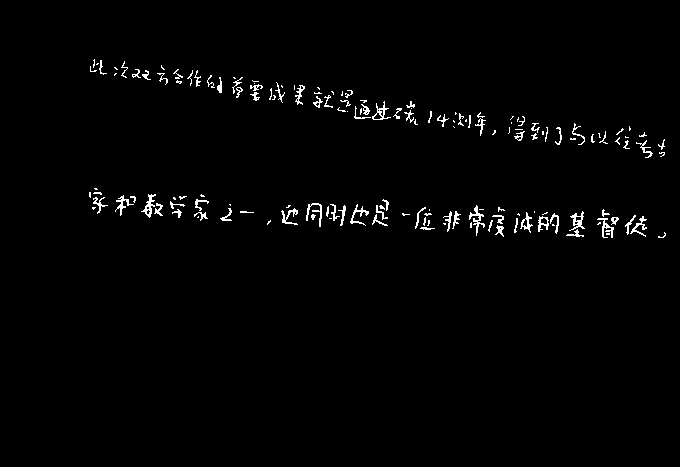 此次双方合作的首要成果就是通过碳14测年，得到了与以往考古
家和数学家之一，他同时也是一位非常虔诚的基督徒。